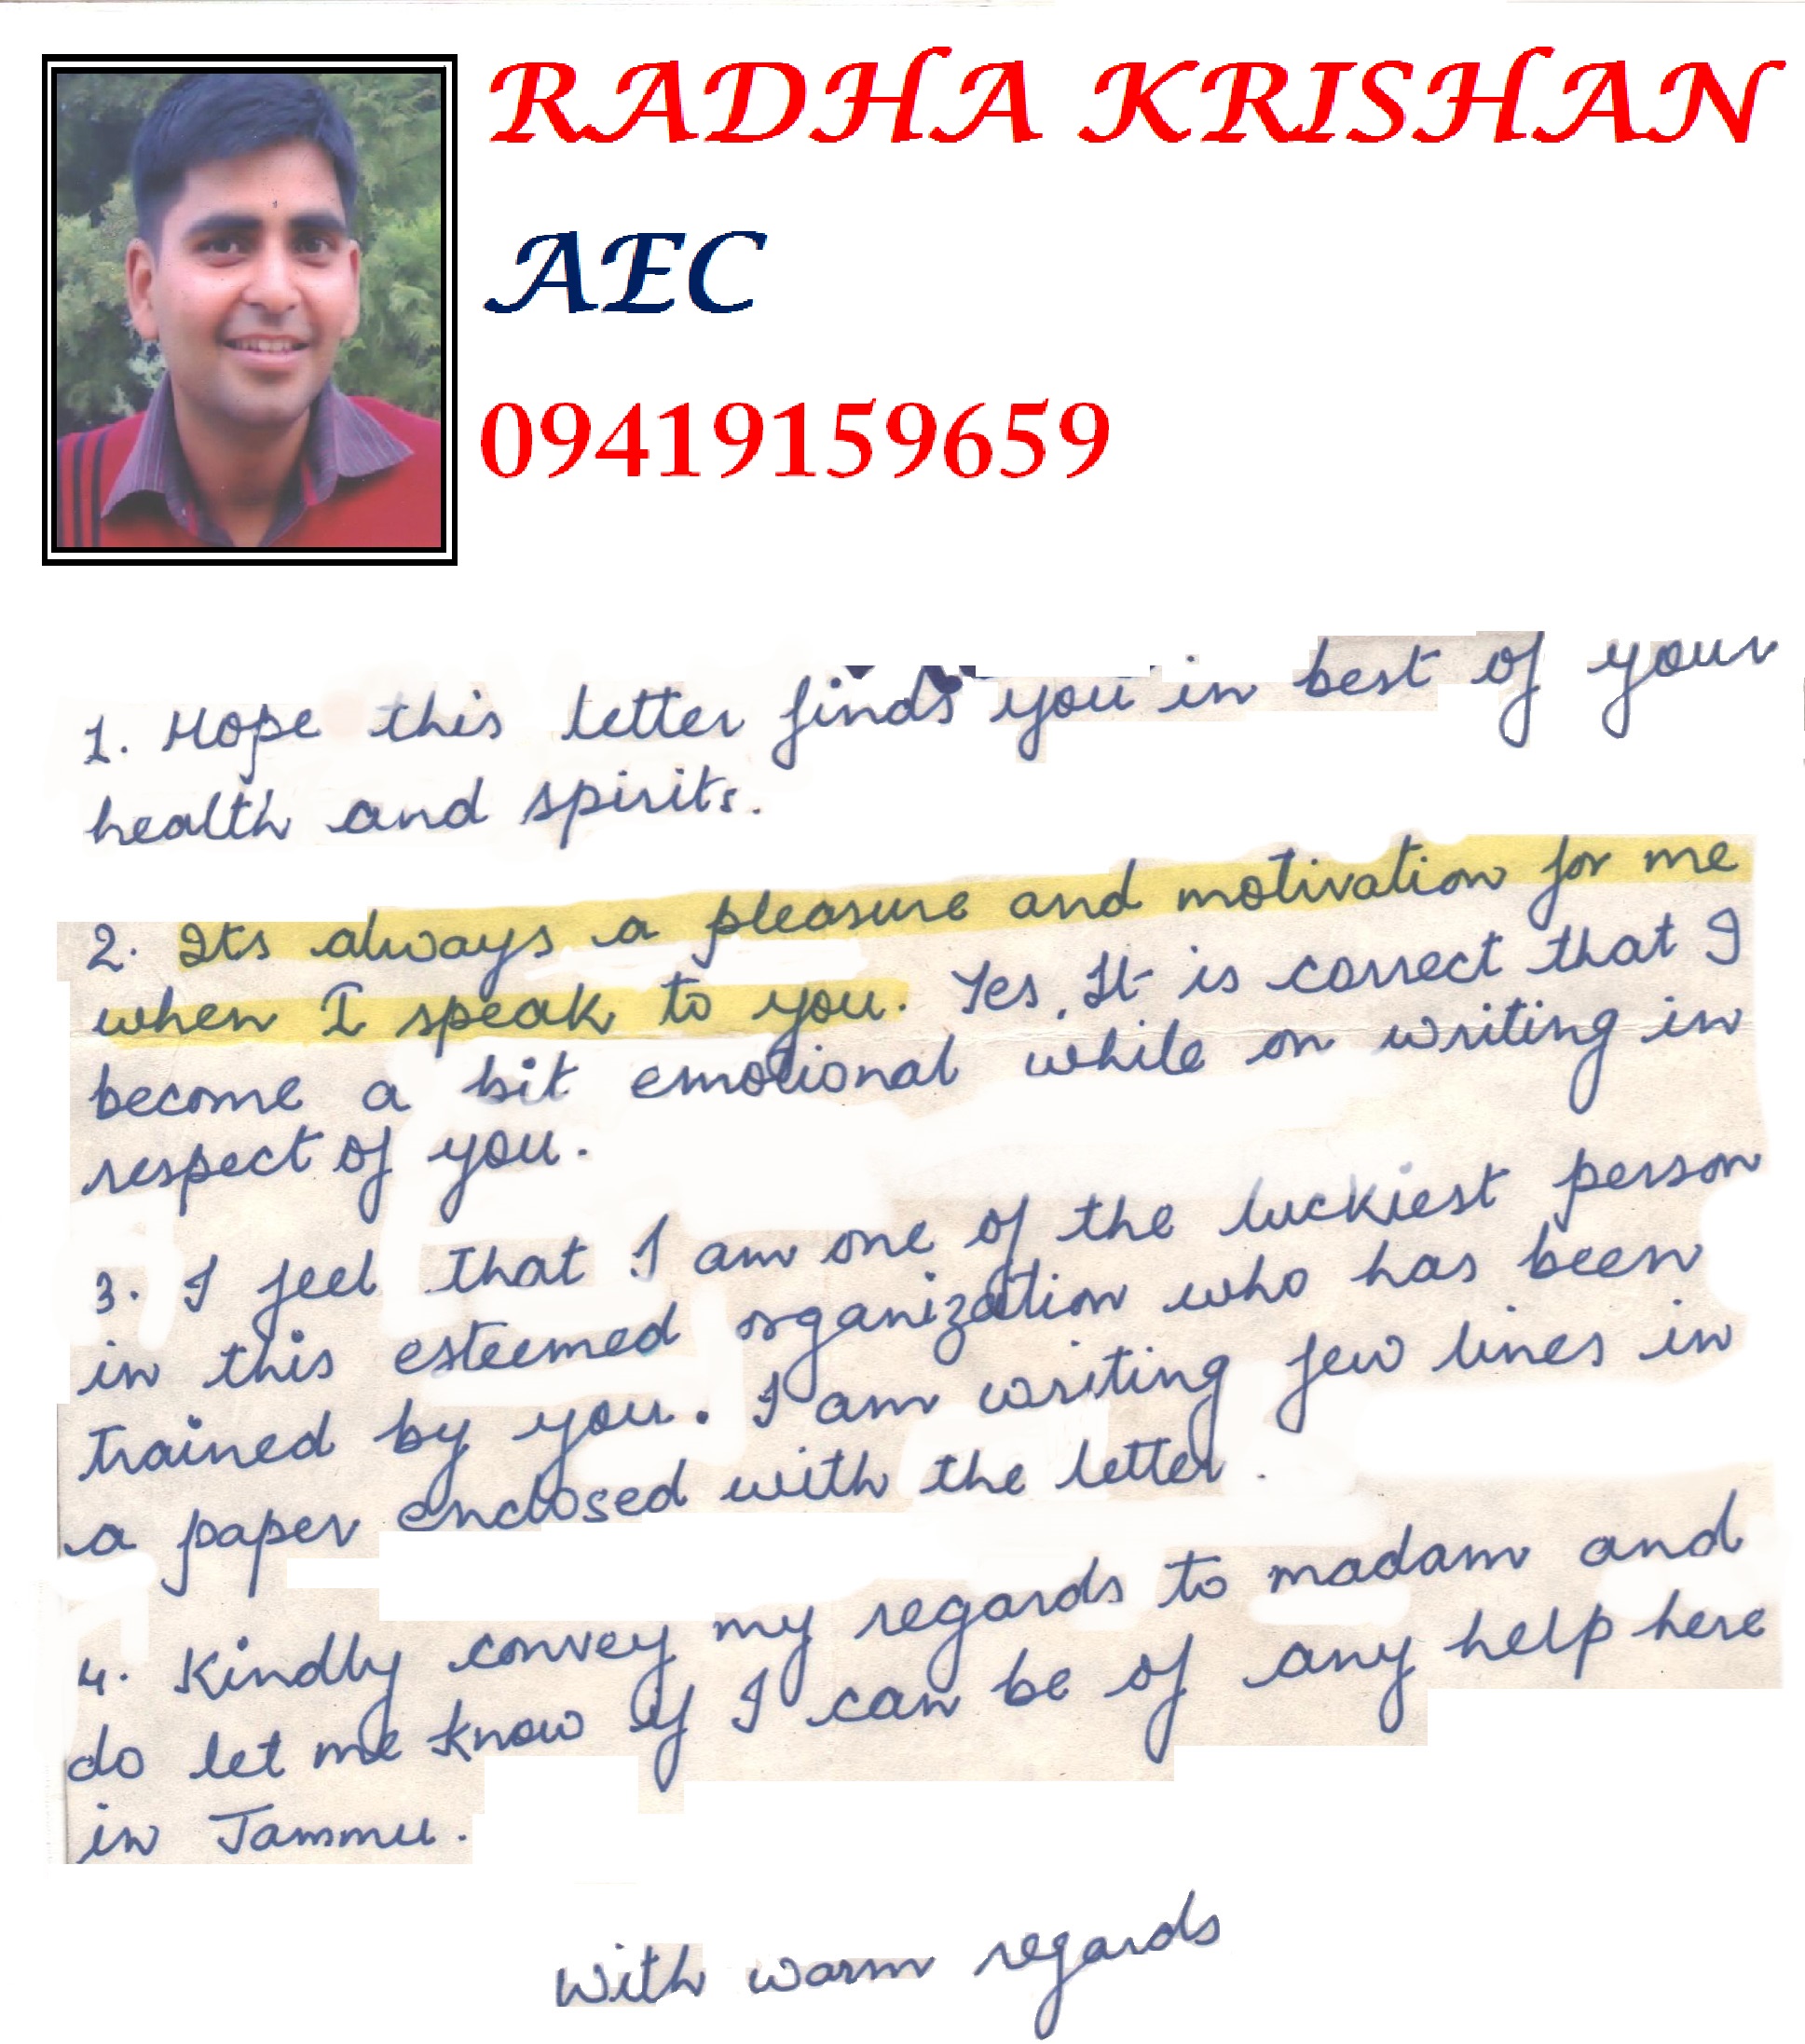 RADHA KRISHAN
AEC
09419159659
1. Hope this letter finds you in best of your
health and spirits.
2. Its always a pleasure and motivation for me
when I speak to you. Yes, It is correct that I
become a bit emotional while on writing in
respect of you.
3. I feel that I am one of the luckiest person
in this esteemed organization who has been
trained by you. I am writing few lines in
a paper enclosed with the letter.
4. Kindly convey my regards to madam and
do let me know if I can be of any help here
in Jammu.
With warm regards